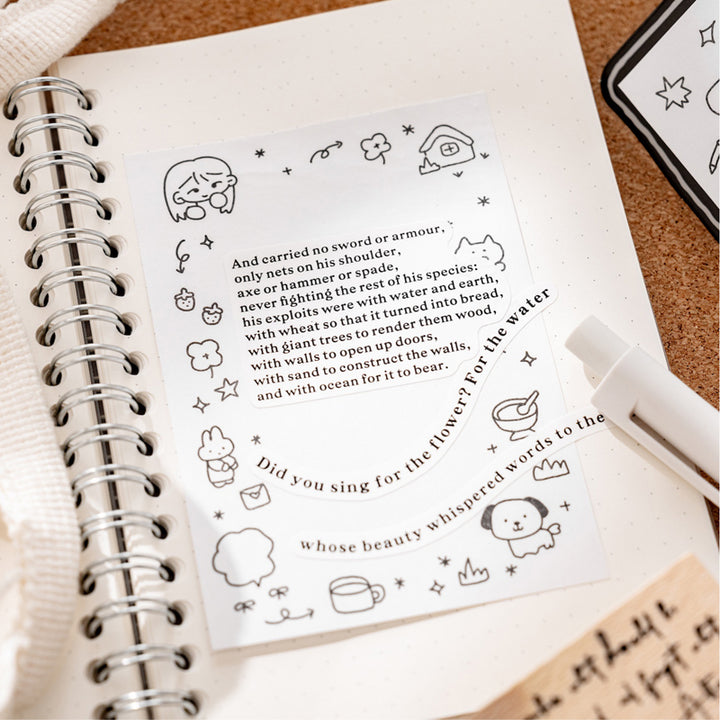 And carried no sword or armour,
only nets on his shoulder,
axe or hammer or spade,
never fighting the rest of his species:
his exploits were with water and earth,
with wheat so that it turned into bread,
with giant trees to render them wood,
with walls to open up doors,
with sand to construct the walls,
and with ocean for it to bear.
Did you sing for the flower? For the water
whose beauty whispered words to the